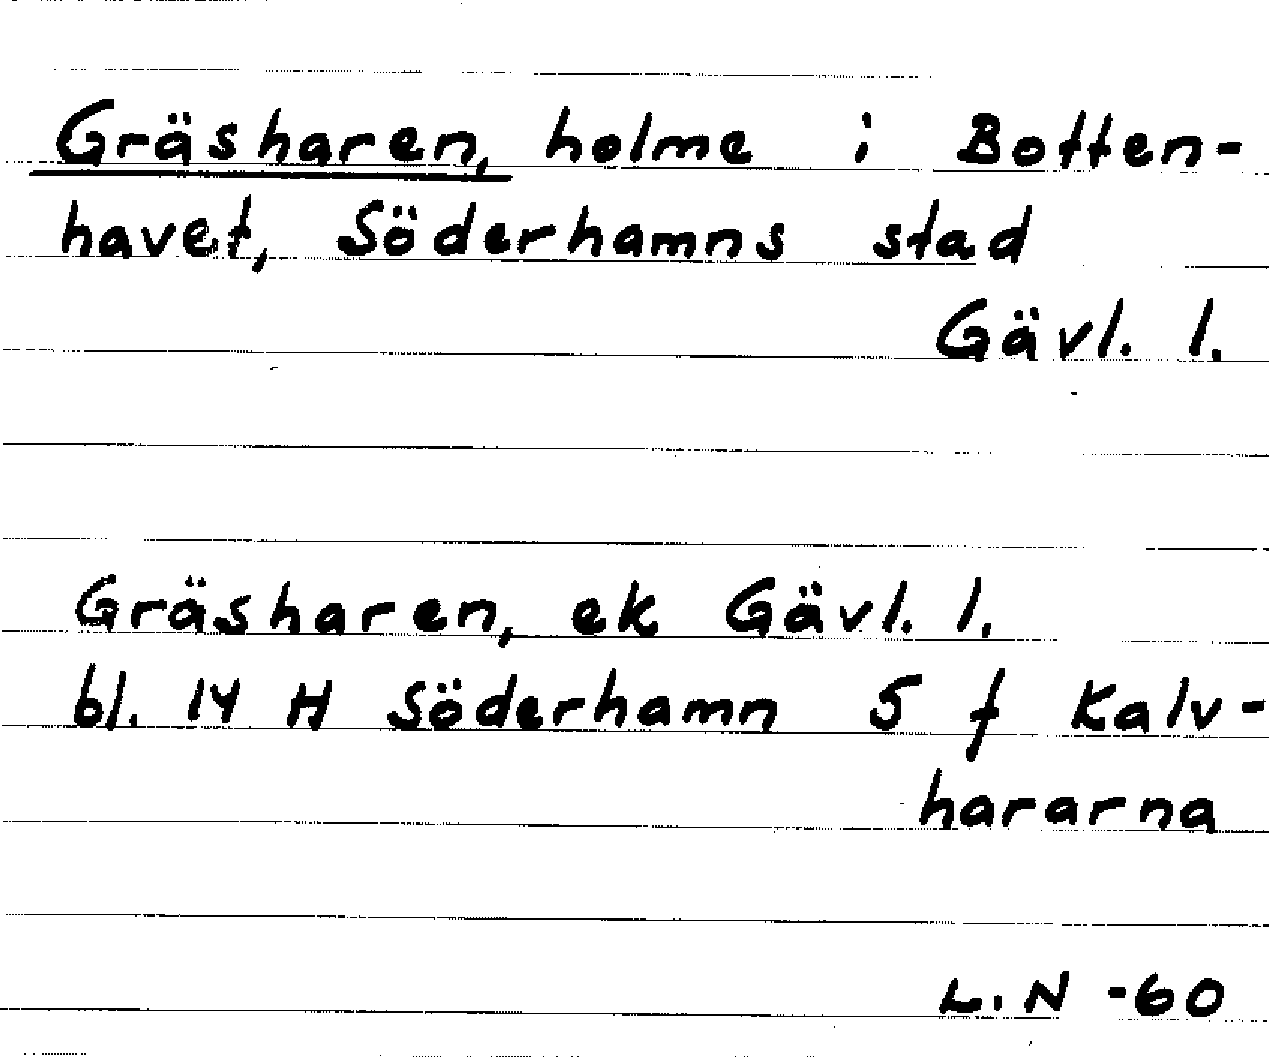 Gräsharen, holme i Botten-
havet, Söderhamns stad
Gävl. l.
Gräsharen, ek Gävl. l.
bl. 14 H Söderhamn 5 f Kalv-
hararna
L. N -60